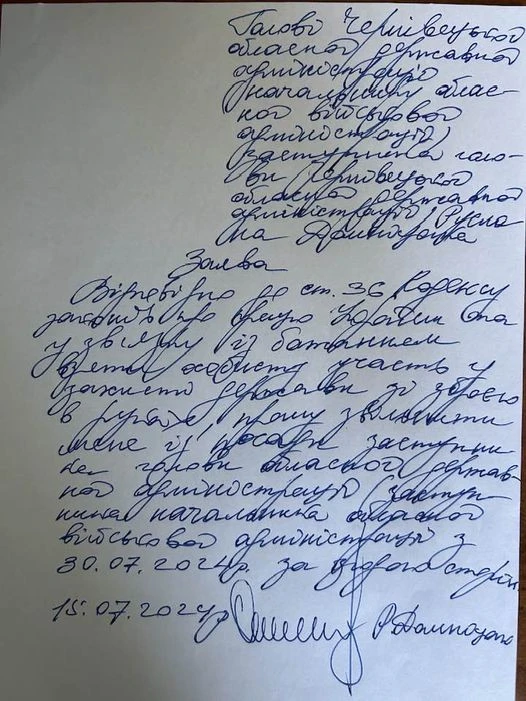 Голові Чернівецької
обласної державної
адміністрації
(начальнику облас-
ної військової
адміністрації)
заступника голо-
ви Чернівецької
обласної державної
адміністрації Русла
на
Заява
Відповідно до ст. 36 Кодексу
законів про працю України та
у зв'язку із бажанням
взяти особисту участь у
захисті держави зі зброєю
в руках, прошу звільнити
мене із посади заступни
ка голови обласної держав
ної адміністрації (заступ
ника начальника обласної
військової адміністрації з
30.07.2024р. за згодою сторін
15.07.2024р